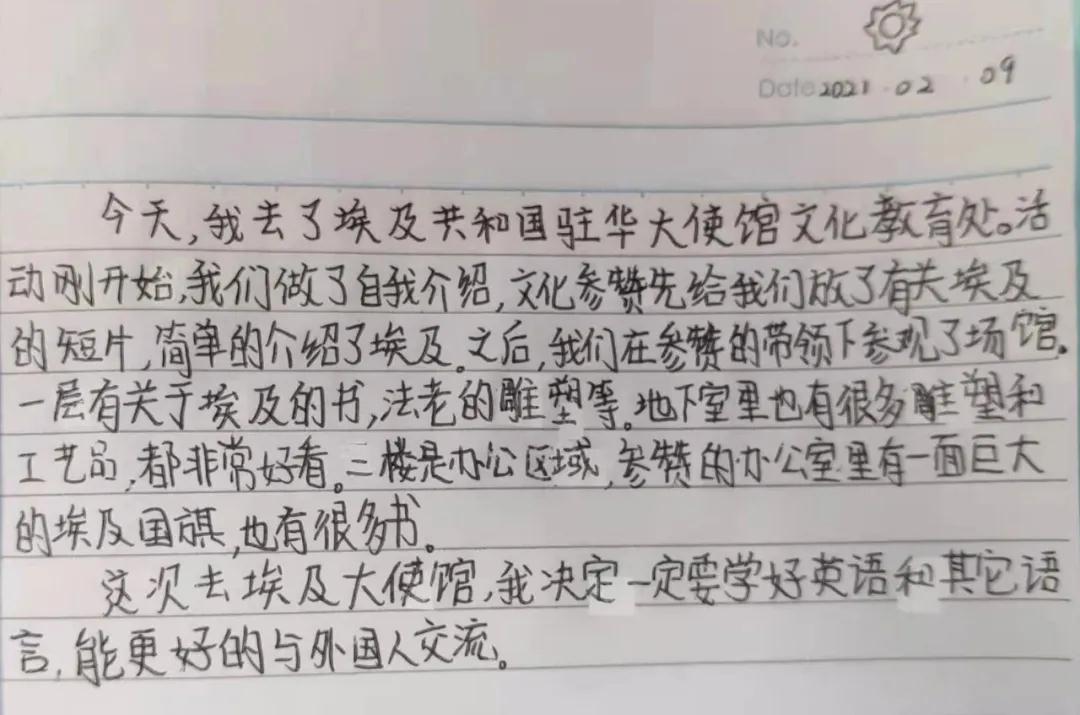 No.
Date 2021.02.09
今天,我去了埃及共和国驻华大使馆文化教育处。活
动刚开始,我们做了自我介绍,文化参赞先给我们放了有关埃及
的短片,简单的介绍了埃及。之后,我们在参赞的带领下参观了场馆.
一层有关于埃及的书,法老的雕塑等。地下室里也有很多雕塑和
工艺品,都非常好看。三楼是办公区域,参赞的办公室里有一面巨大
的埃及国旗,也有很多书。
这次去埃及大使馆,我决定一定要学好英语和其它语
言,能更好的与外国人交流。